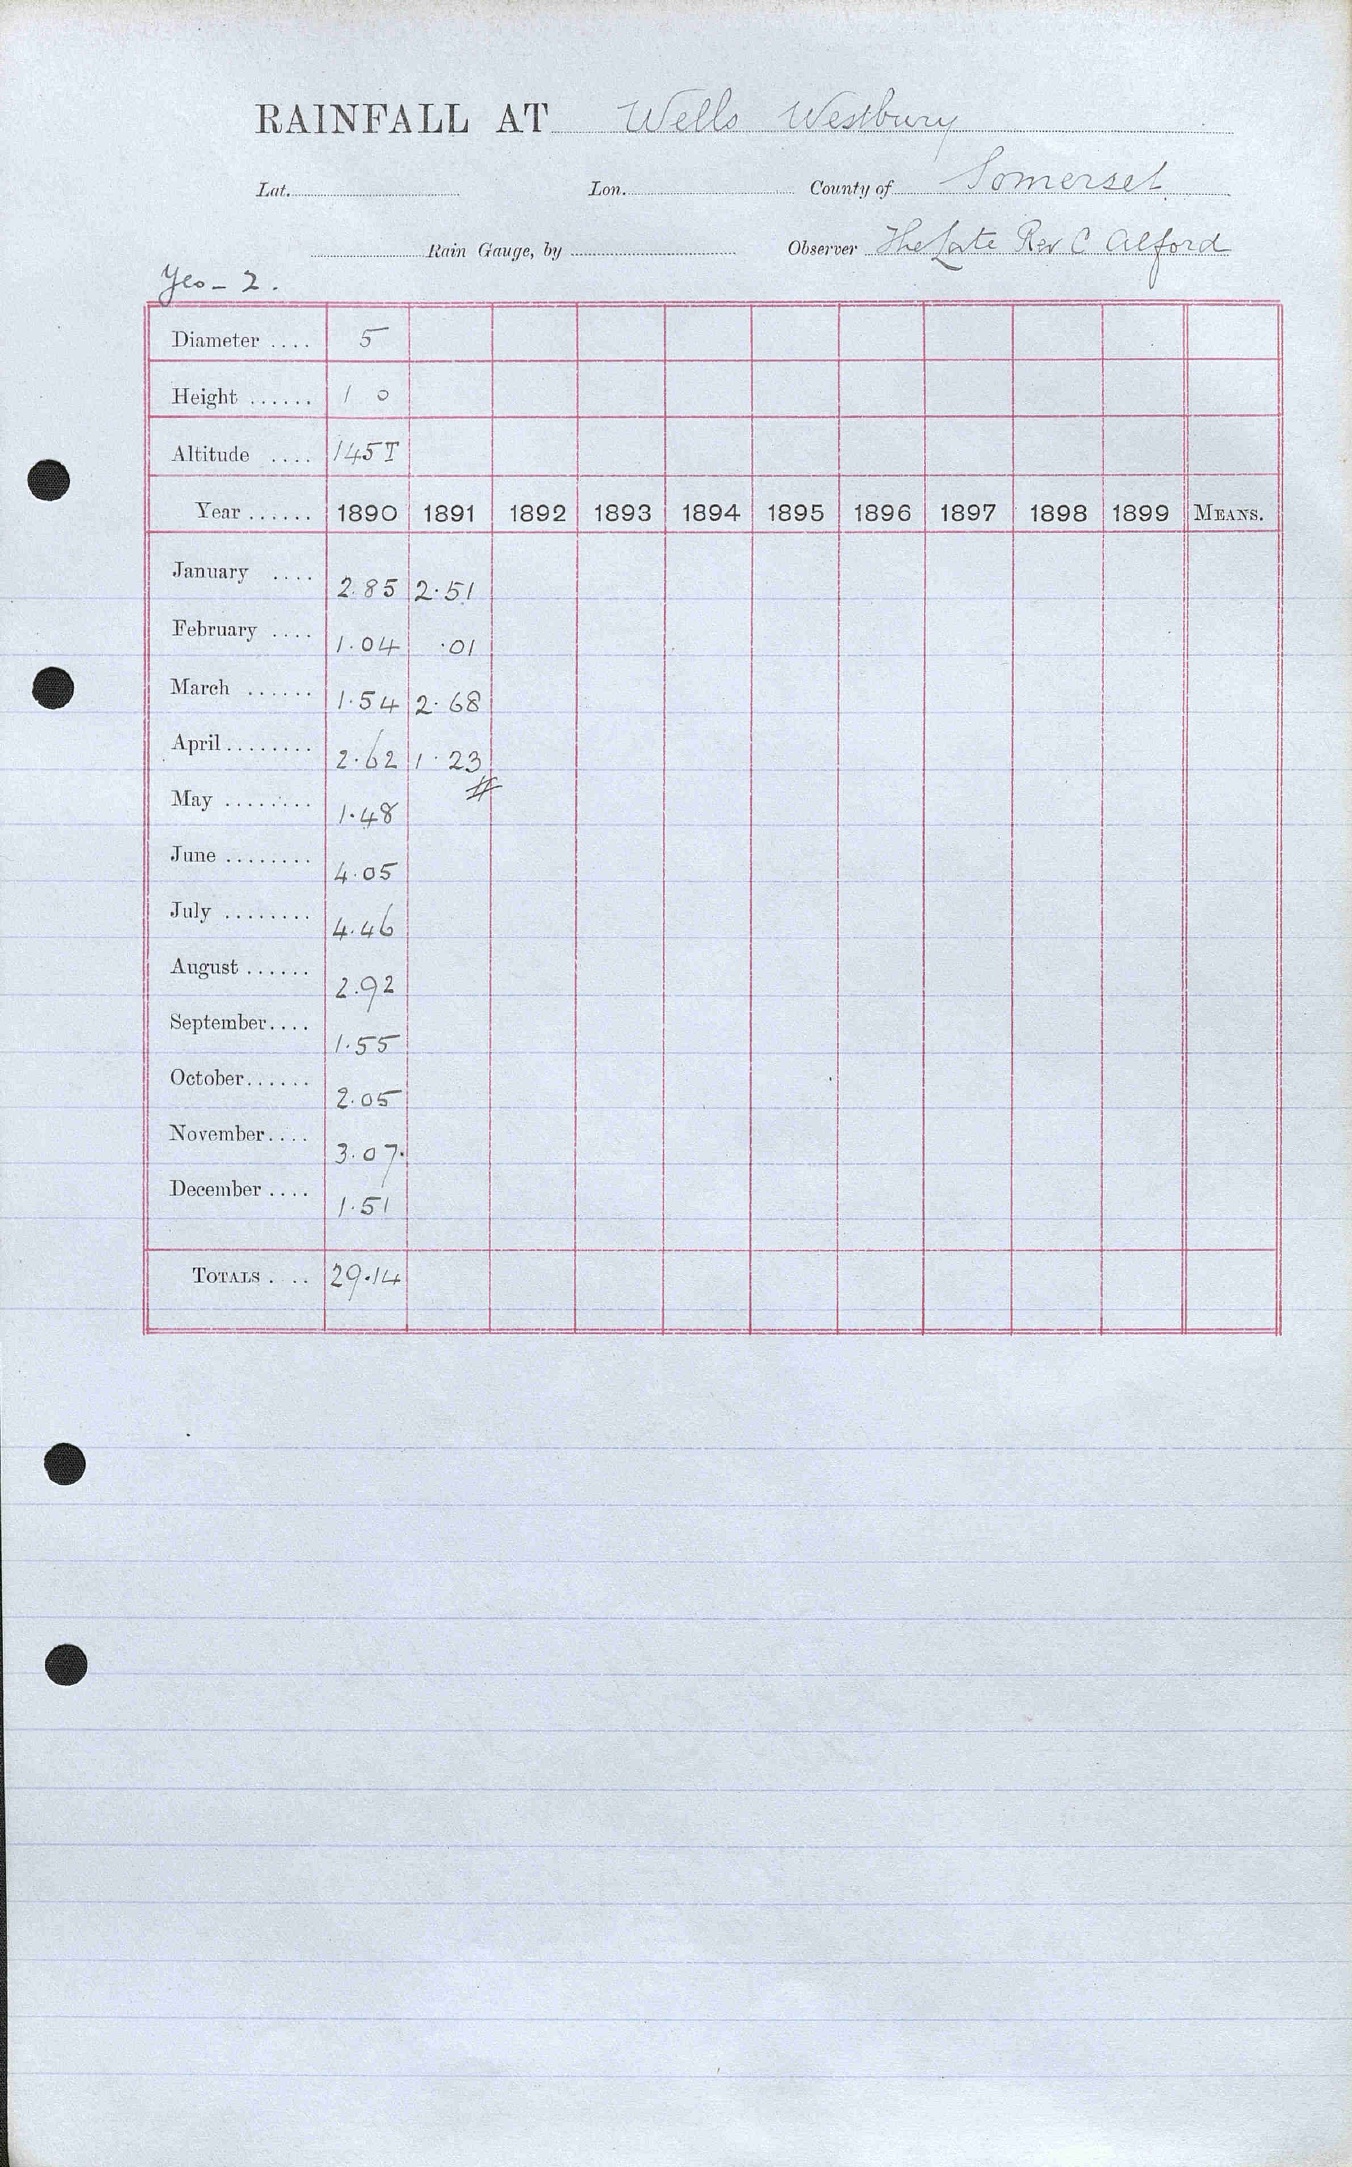 RAINFALL AT Wells Westbury
Lat. Lon. County of Somerset
Rain Gauge, by Observer The Late Rev C Alford
Yeo - 2.
Diameter .... 5
Height ...... 1 0
Altitude .... 145T
Year ...... 1890 1891 1892 1893 1894 1895 1896 1897 1898 1899 MEANS.
January .... 2.85 2.51
February .... 1.04 .01
March ...... 1.54 2.68
April ........ 2.62 1.23
#
May ........ 1.48
June ........ 4.05
July ........ 4.46
August ...... 2.92
September .... 1.55
October ...... 2.05
November .... 3.07.
December .... 1.51
TOTALS .... 29.14